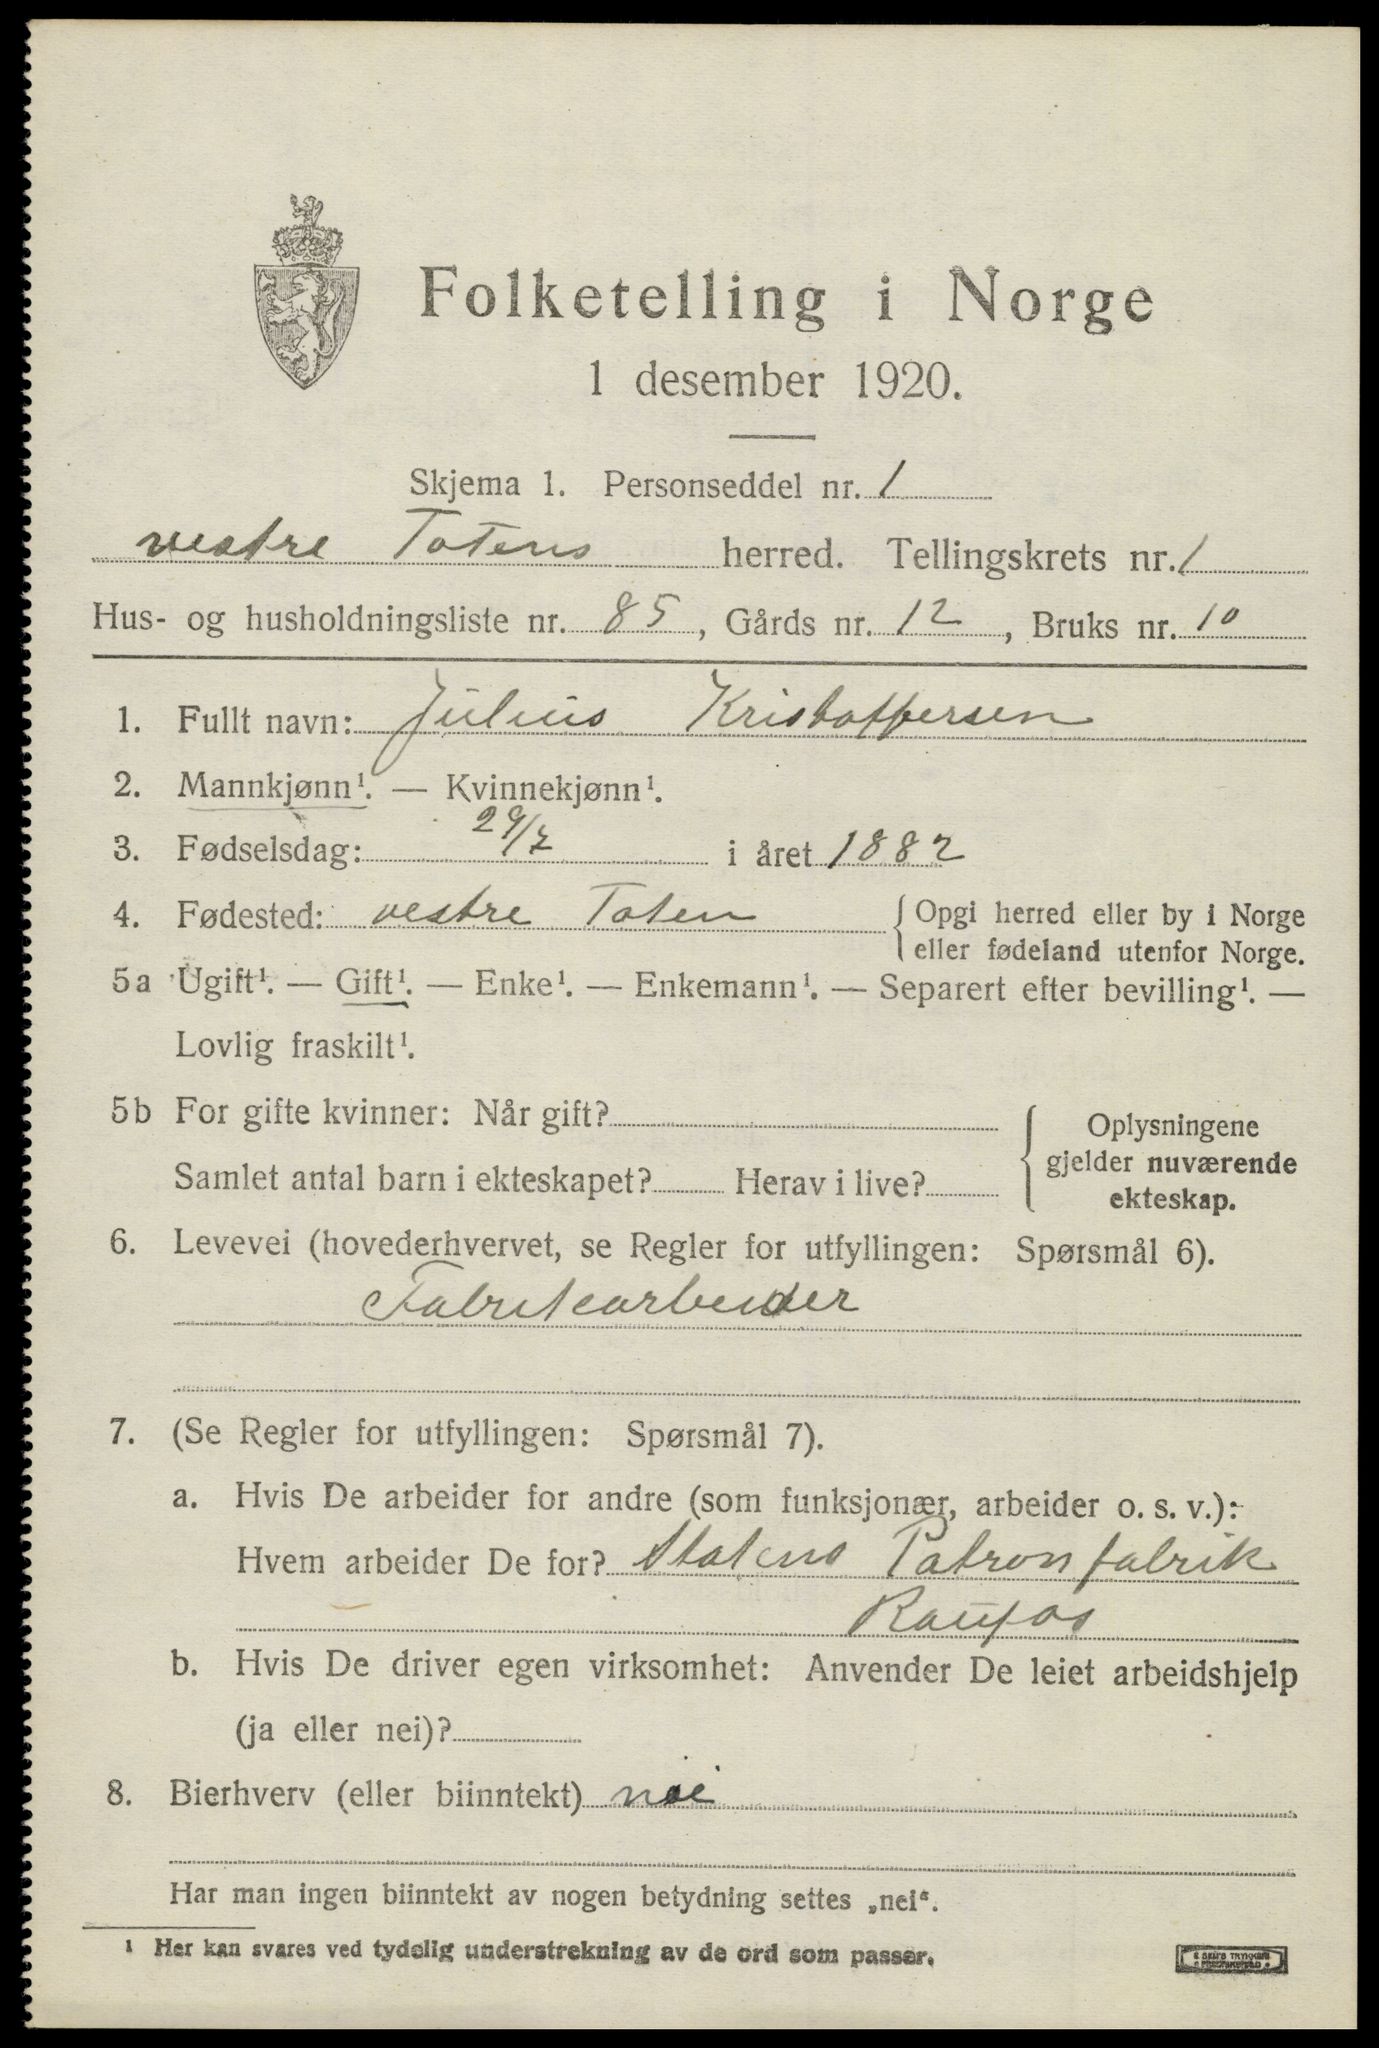 Folketelling i Norge
1 desember 1920.
Skjema 1. Personseddel nr. 1
vestre Totens herred. Tellingskrets nr. 1
Hus- og husholdningsliste nr. 85, Gårds nr. 12, Bruks nr. 10
1. Fullt navn: Julius Kristoffersen
2. Mannkjønn¹. — Kvinnekjønn¹.
3. Fødselsdag: 29/7 i året 1882
4. Fødested: vestre Toten { Opgi herred eller by i Norge
eller fødeland utenfor Norge.
5a Ugift¹. — Gift¹. — Enke¹. — Enkemann¹. — Separert efter bevilling¹. —
Lovlig fraskilt¹.
5b For gifte kvinner: Når gift? { Oplysningene
gjelder nuværende
Samlet antal barn i ekteskapet? Herav i live?
ekteskap.
6. Levevei (hovederhvervet, se Regler for utfyllingen: Spørsmål 6).
Fabrikarbeider
7. (Se Regler for utfyllingen: Spørsmål 7).
a. Hvis De arbeider for andre (som funksjonær, arbeider o. s. v.):
Hvem arbeider De for? Statens Patronfabrik
Raufos
b. Hvis De driver egen virksomhet: Anvender De leiet arbeidshjelp
(ja eller nei)?
8. Bierhverv (eller biinntekt) nei
Har man ingen biinntekt av nogen betydning settes „nei“.
¹ Her kan svares ved tydelig understrekning av de ord som passer.